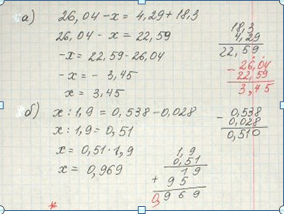 а) 26,04 - x = 4,29 + 18,3
26,04 - x = 22,59
-x = 22,59 - 26,04
-x = - 3,45
x = 3,45
18,3
4,29
22,59
- 26,04
22,59
3,45
б) x : 1,9 = 0,538 - 0,028
x : 1,9 = 0,51
x = 0,51 · 1,9
x = 0,969
- 0,538
0,028
0,510
1,9
0,51
19
+ 95
0,969
*